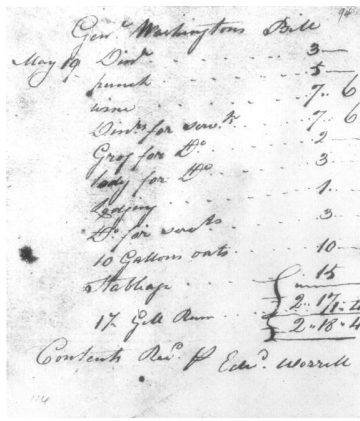 94
Genl. Washingtons Bill
May 19 Dinr. 3—
punch 5—
wine 7..6
Dinrs for servts. 7..6
Grog for Do. 2—
for Do. 3.
Lodging 1.
Do. for servts. 3.
10 Gallons oats 10—
stablage 15
2..17
17 Gill Rum
2..18..4
Contents Recd. pr Edwd. Worrell